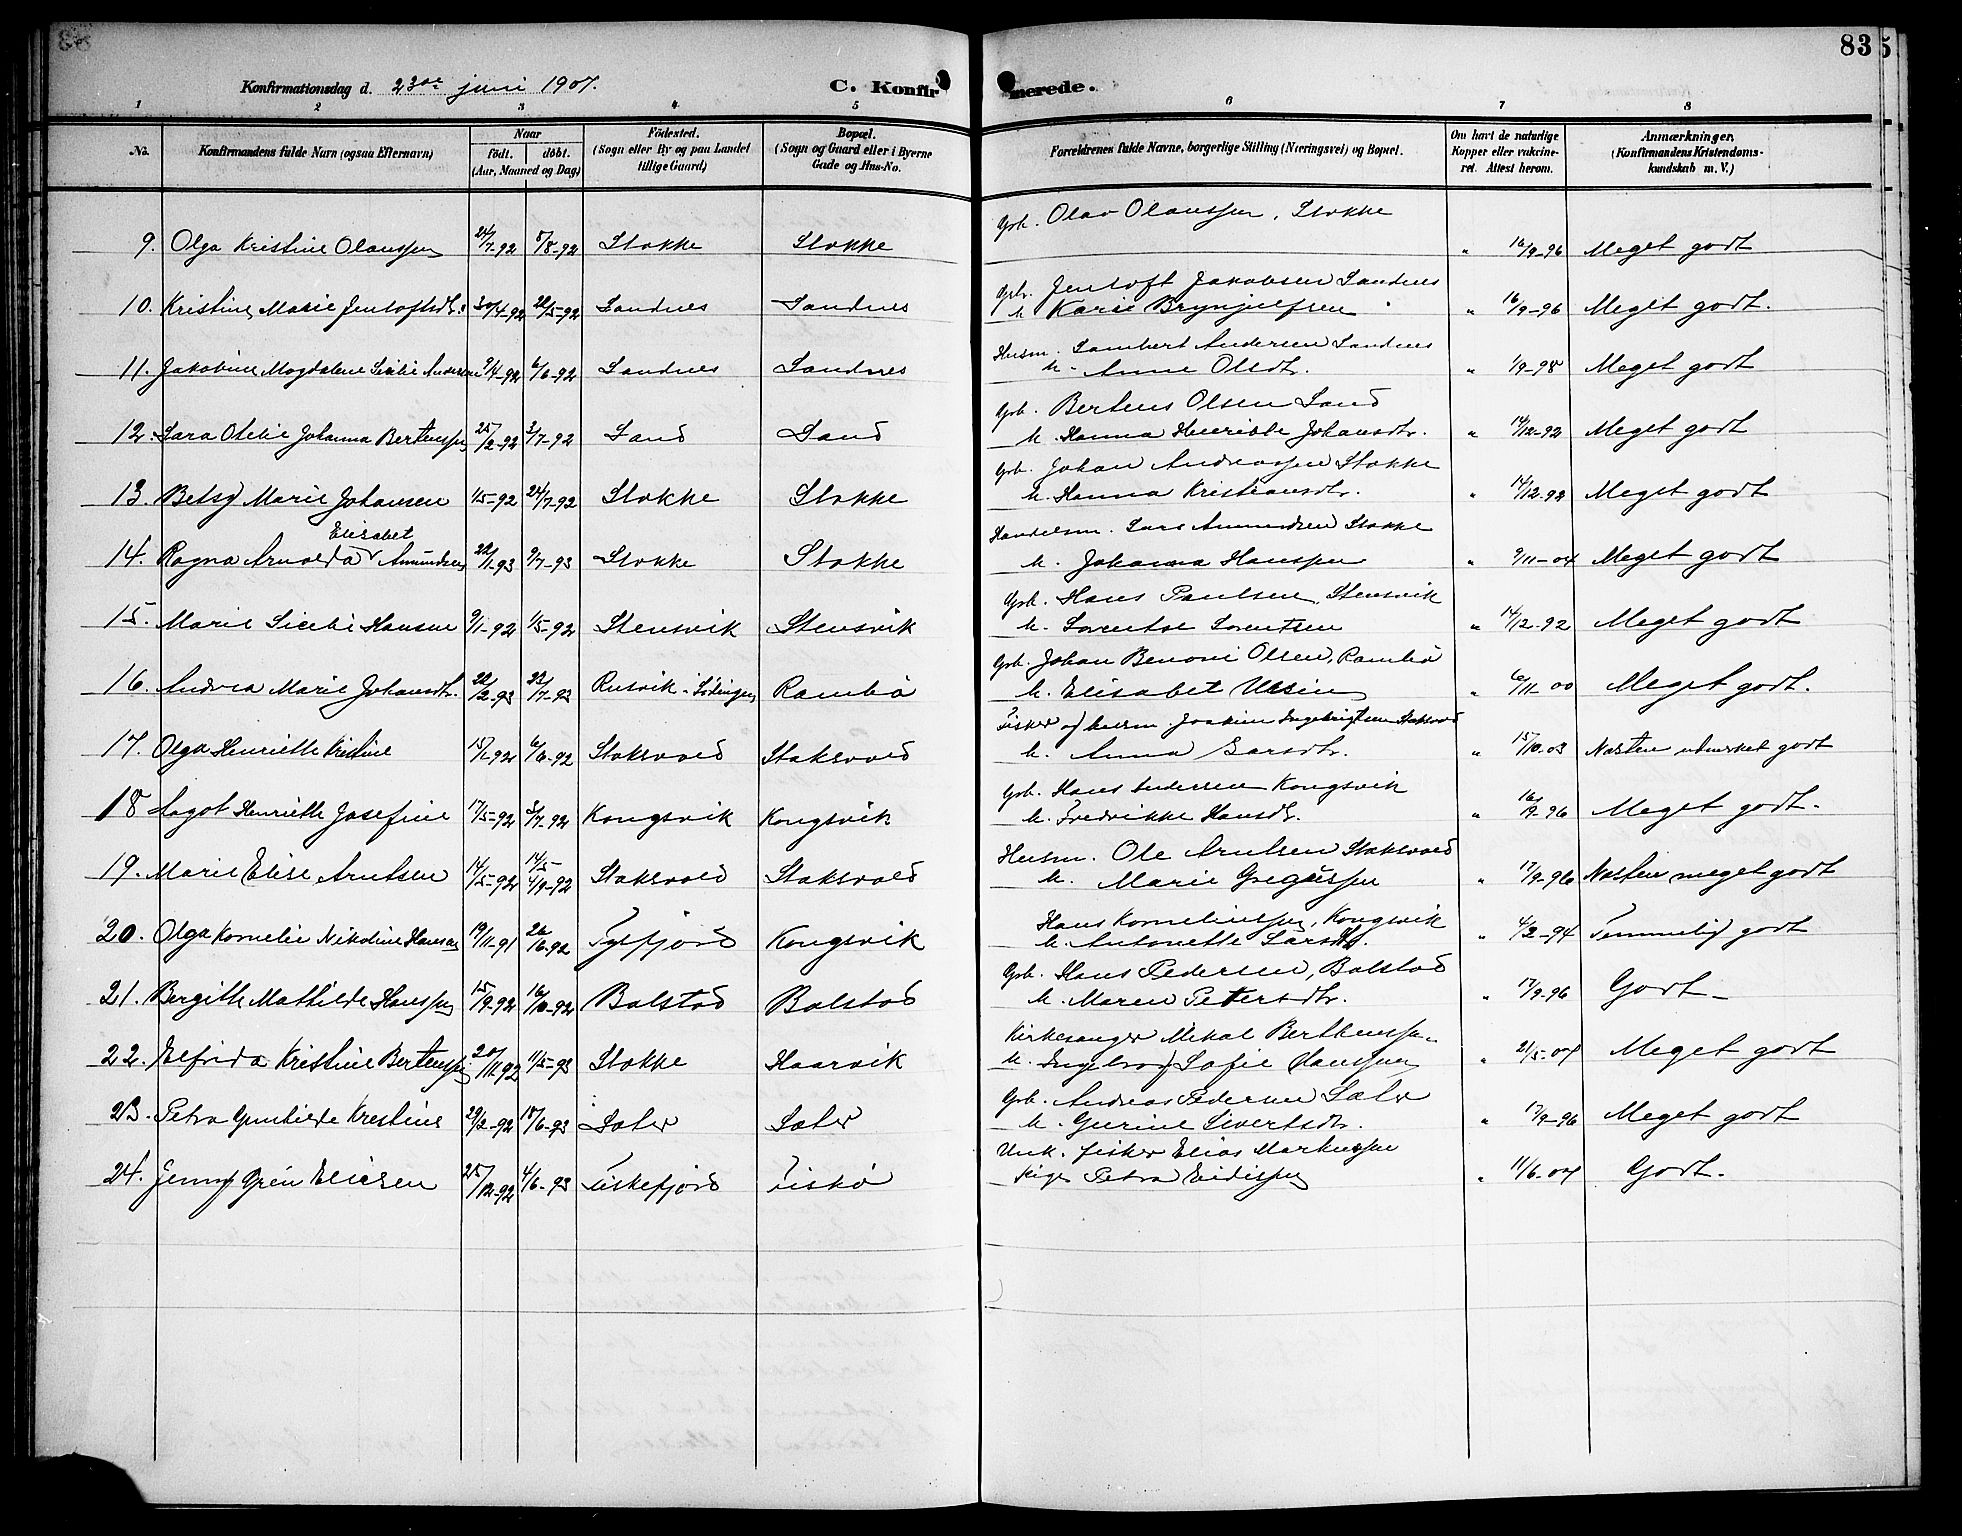 83
Konfirmationsdag d. 23de juni 1907. C. Konfirmerede.
1 2 3 4 5 6 7 8
No. Konfirmandens fulde Navn (ogsaa Efternavn) Naar födt. döbt. (Aar, Maaned og Dag) Födested. (Sogn eller By og paa Landet tillige Gaard) Bopæl. (Sogn og Gaard eller i Byerne Gade og Hus-No. Forældrenes fulde Navne, borgerlige Stilling (Næringsvei) og Bopæl. Om havt de naturlige Kopper eller vakcineret. Attest herom. Anmærkninger. (Konfirmandens Kristendomskundskab m. V.)
Grb. Olav Olaussen, Stokke
9. Olga Kristine Olaussen 24/7-92 5/8-92 Stokke Stokke " 16/9-96 Meget godt
Grb. Jentoft Jakobsen Sandnes
10. Kristine Marie Jentoftsdtr. 30/4-92 22/5-92 Sandnes Sandnes h. Karie Brynjulfsen " " 16/9-96 Meget godt.
Husm. Lambert Andersen Sandnes
11. Jakobine Magdalene Sicilie Andersen 9/4-92 6/6-92 Sandnes Sandnes h. Anne Olsdtr. " 1/9-98 Meget godt
Grb. Bertens Olsen Sand
12. Sara Otelie Johanna Bertenssen 25/2-92 3/7-92 Sand Sand h. Hanna Henrikke Johansdtr. " 14/12-92 Meget godt
Grb. Johan Andreassen Stokke
13. Betsy Marie Johansen 1/5-92 24/7-92 Stokke Stokke h. Hanna Kristiansdtr. " 14/12-92 Meget godt
Elisabet Handelsm. Lars Amundsen Stokke
14. Ragna Arnolda Amundsen 22/1-93 9/7-93 Stokke Stokke h. Johanna Hanssen " 9/11-04 Meget godt
Grb. Hans Paulsen, Stensvik
15. Marie Sicelie Hansen 9/1-92 1/5-92 Stensvik Stensvik h. Lorentse Lorentsen " 14/12-92 Meget godt
Grb. Johan Benoni Olsen, Rambö
16. Andrea Marie Johansdtr. 22/2-93 23/7-93 Rusvik i Lödingen Rambö h. Elisabet Ursin " 6/11-00 Meget godt.
Fisker og husm. Joakim Ingebrigtsen Staksvold
17. Olga Henriette Kristine 15/1-92 6/6-92 Staksvold Staksvold h. Anna Larsdtr. " 15/10-03 Næsten udmerket godt
Grb. Hans Andersen Kongsvik
18 Hagot Henriette Josefine 17/5-92 3/7-92 Kongsvik Kongsvik h. Fredrikke Hansdtr. " 16/9-96 Meget godt.
14/5 Husm. Ole Arntsen Staksvold
19. Marie Elise Arntsen 14/5-92 4/9-92 Staksvold Staksvold h. Marie Gregussen " 17/9-96 Næsten meget godt
Hans Korneliussen, Kongsvik
20. Olga Kornelie Nikoline Hansen 19/11-91 26/6-92 Tysfjord Kongsvik h. Antonette Larsdtr. " 4/2-94 Temmelig godt
Grb. Hans Pedersen, Balstad
21. Bergitte Mathilde Hanssen 15/9-92 16/10-92 Balstad Balstad h. Maren Petersdtr. " 17/9-96 Godt
Kirkesanger Mikal Berthenssen
22. Elfrida Kristine Bertenssen 20/11-92 11/5-93 Stokke Haarvik h. Ingeborg Sofie Hanssen " 21/5-07 Meget godt
Grb. Andreas Pedersen Sæter
23. Petra Gunhilde Kristine 29/2-92 18/6-93 Sæter Sæter h. Gurine Sivertsdtr. " 17/9-96 Meget godt
Unk. fisker Elias Markussen
24. Jenny Gren Eliesen 25/12-92 4/6-93 Fiskefjord Fiskö Pige Petra Eidissen " 11/6-07 Godt.